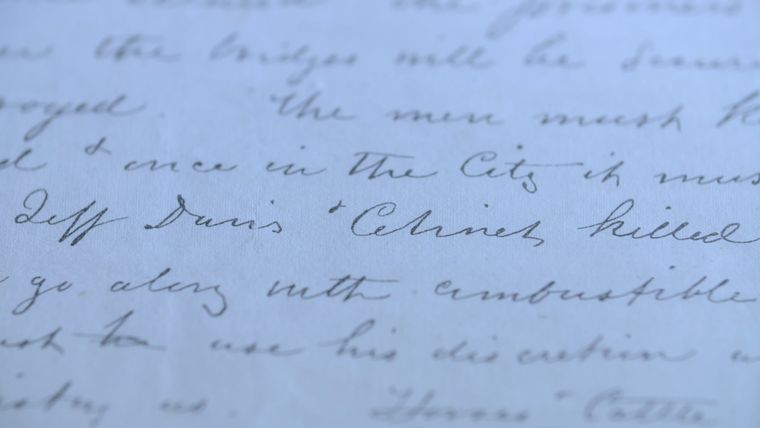 the prisoners
the bridges will be secur
royed. the men must k
d & once in the City it mus
Jeff Davis & Cabinet killed
go along with combustible
st to use his discretion a
us. Horses & Cattle